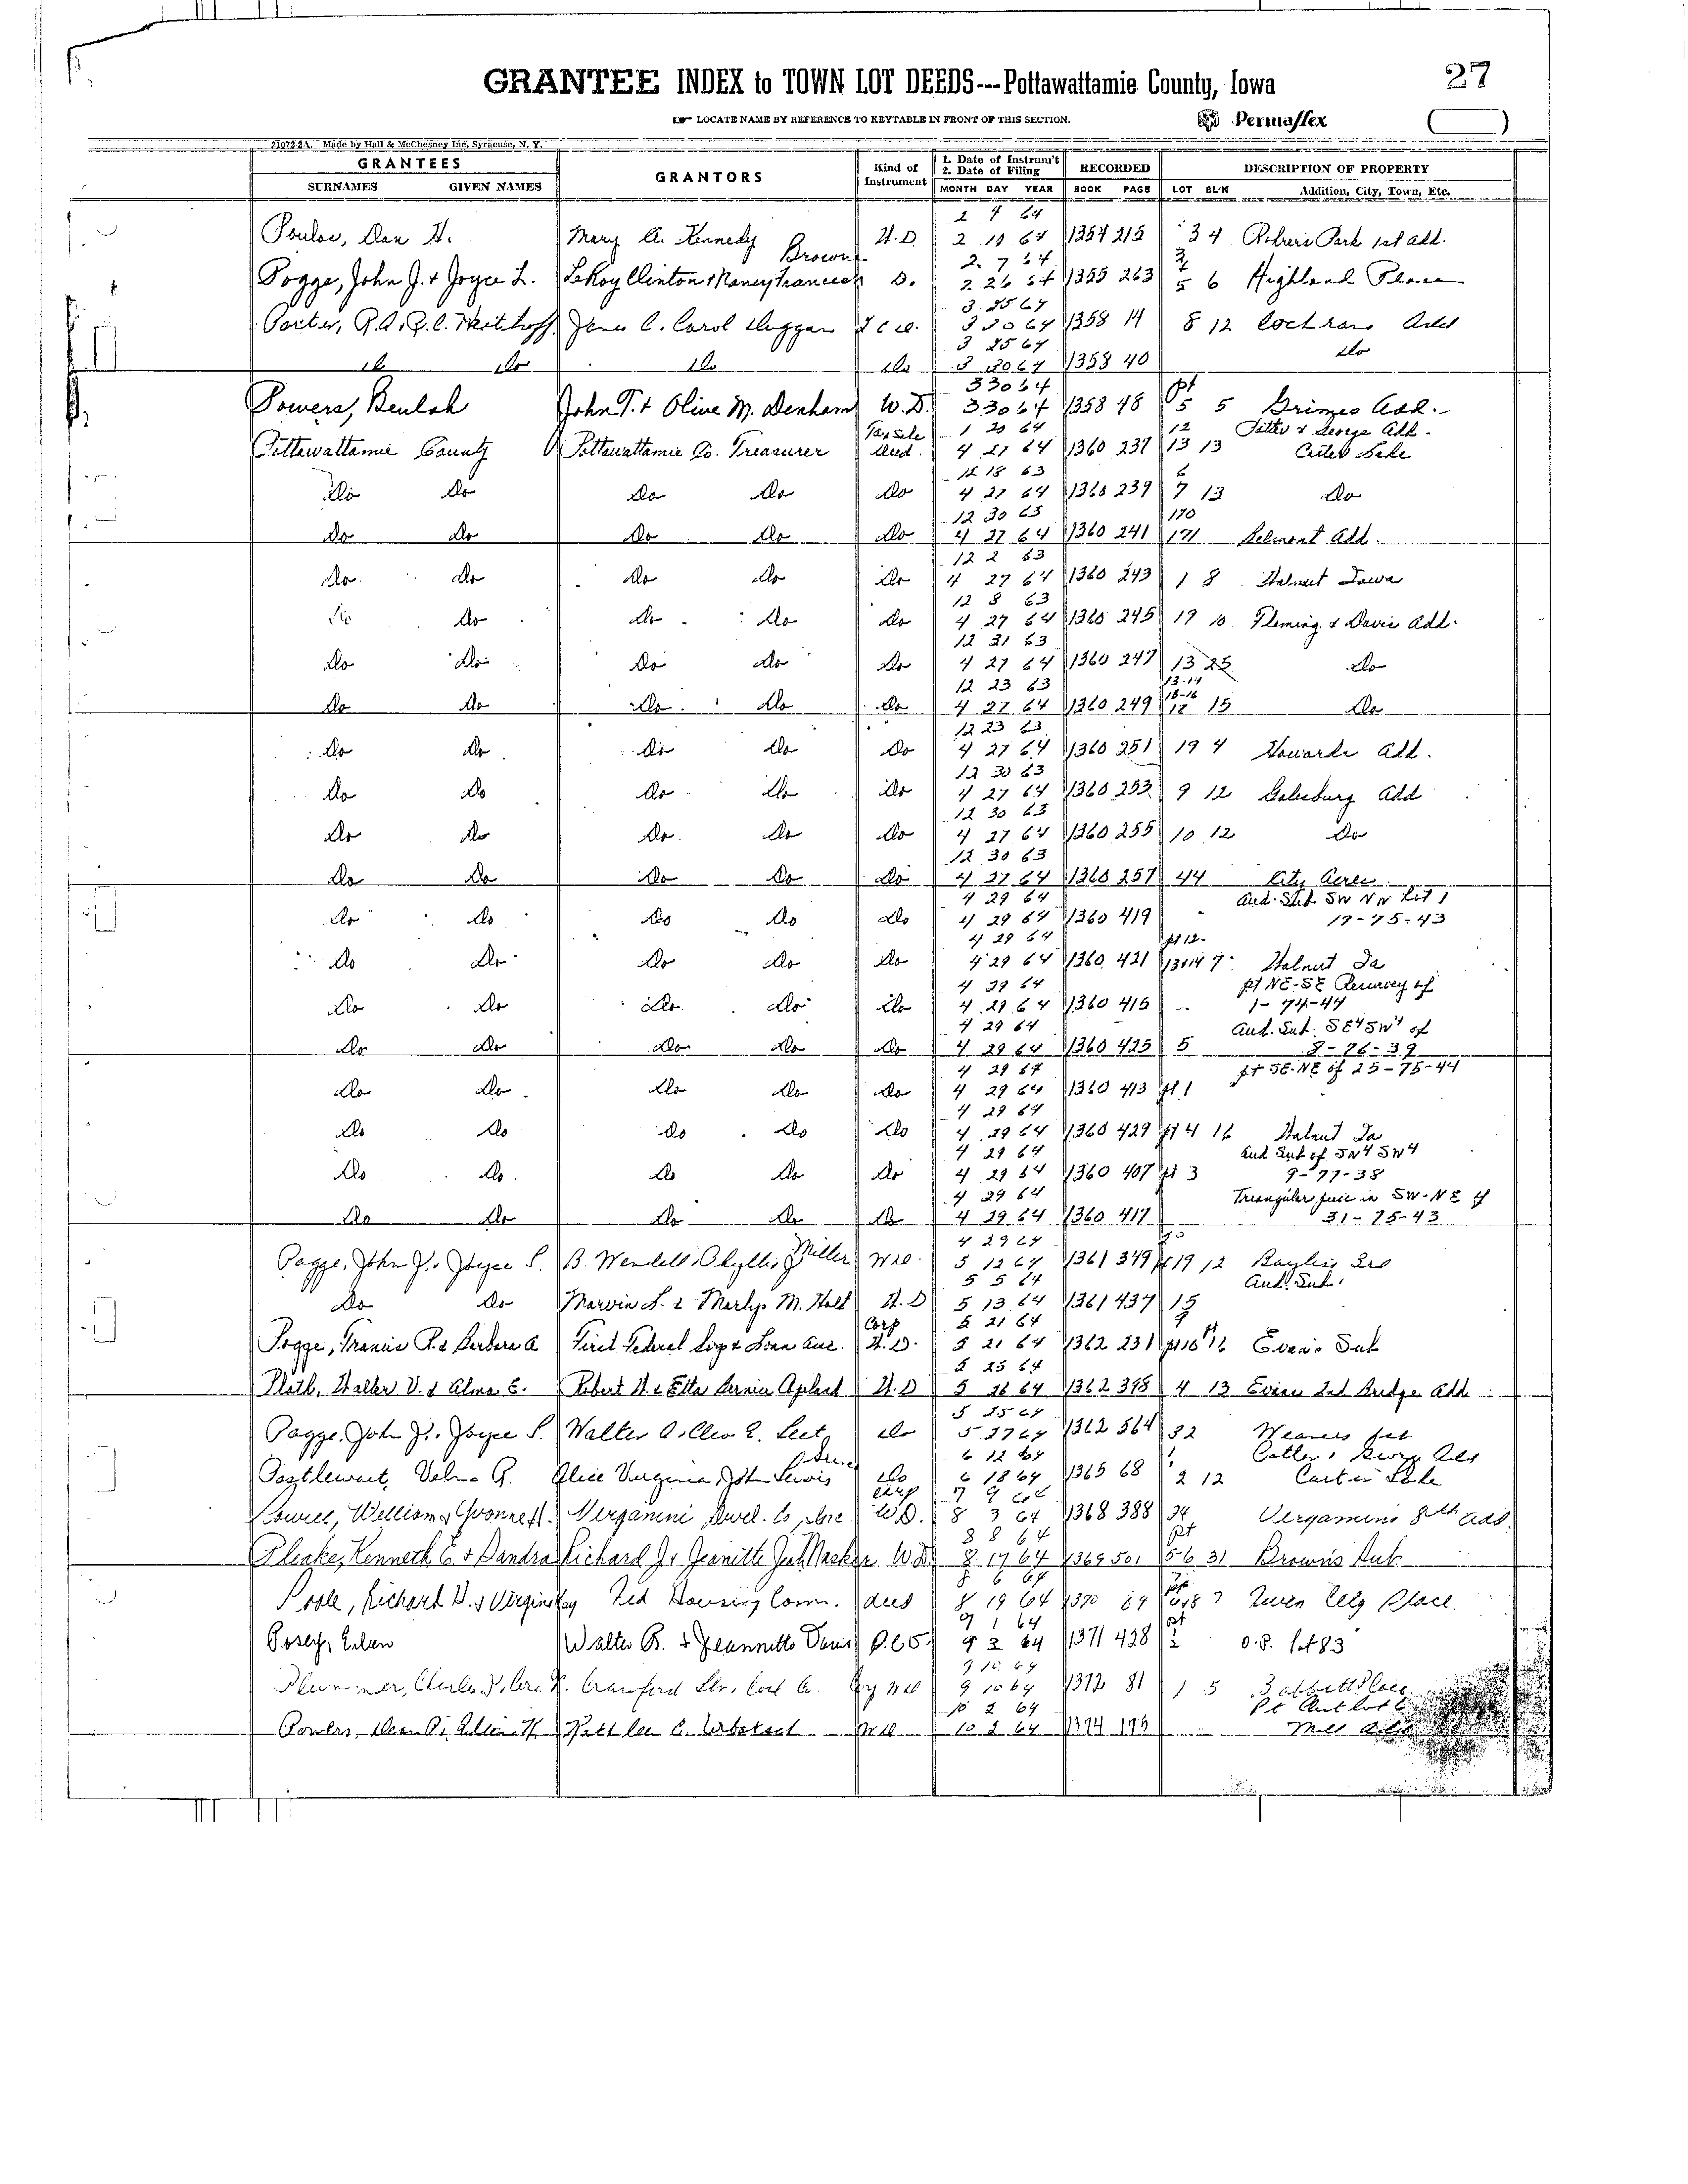 27
GRANTEE INDEX to TOWN LOT DEEDS---Pottawattamie County, Iowa
LOCATE NAME BY REFERENCE TO KEYTABLE IN FRONT OF THIS SECTION.
Permaflex
Made by Hall & McChesney Inc, Syracuse, N. Y.
GRANTEES GRANTORS Kind of Instrument 1. Date of Instrum't 2. Date of Filing RECORDED DESCRIPTION OF PROPERTY
SURNAMES GIVEN NAMES MONTH DAY YEAR BOOK PAGE LOT BL'K Addition, City, Town, Etc.
Mary A. Kennedy W.D. 2 19 64 1354 215 3 4 Park 1st Add.
Brown 2 7 64
Pogge, John J. + Joyce L. LeRoy Clinton + Nancy Frances D. 2 26 64 1355 263 5 6 Highland Place
3 25 64
Carol Duggan 3 30 64 1358 14 8 12 Cochrans Add
3 25 64
Do Do Do Do 3 30 64 1358 40 Do
3 30 64 pt
Powers, Beulah John T. + Olive M. Denham W.D. 3 30 64 1358 48 5 5 Grimes Add.
Tax Sale 1 20 64 12
Pottawattamie County Pottawattamie Co. Treasurer Deed. 4 27 64 1360 237 13 13 Carter Lake
12 18 63 6
Do Do Do Do Do 4 27 64 1360 239 7 13 Do
12 30 63 170
Do Do Do Do Do 4 27 64 1360 241 171 Belmont Add.
12 2 63
Do Do Do Do Do 4 27 64 1360 243 1 8 Walnut Iowa
12 8 63
Do Do Do Do Do 4 27 64 1360 245 19 10 Fleming & Davis Add.
12 31 63
Do Do Do Do Do 4 27 64 1360 247 13 25 Do
12 23 63 13-14
15-16
Do Do Do Do Do 4 27 64 1360 249 15 Do
12 23 63
Do Do Do Do Do 4 27 64 1360 251 19 4 Howards Add.
12 30 63
Do Do Do Do Do 4 27 64 1360 253 9 12 Galesburg Add
12 30 63
Do Do Do Do Do 4 27 64 1360 255 10 12 Do
12 30 63
Do Do Do Do Do 4 27 64 1360 257 44 City Acres
4 29 64 Aud. Sub SW NW Lot 1
Do Do Do Do Do 4 29 64 1360 419 19-75-43
4 29 64 pt 12-
Do Do Do Do Do 4 29 64 1360 421 13+14 7 Walnut Ia
4 29 64 pt NE-SE Resurvey of
Do Do Do Do Do 4 29 64 1360 415 1-74-44
4 29 64 Aud. Sub. SE4 SW4 of
Do Do Do Do Do 4 29 64 1360 425 5 8-76-39
4 29 64 pt SE-NE of 25-75-44
Do Do Do Do Do 4 29 64 1360 413 pt 1
4 29 64
Do Do Do Do Do 4 29 64 1360 429 pt 4 16 Walnut Ia
4 29 64 Aud Sub of SW4 SW4
Do Do Do Do Do 4 29 64 1360 407 pt 3 9-77-38
4 29 64 Triangular piece in SW-NE of
Do Do Do Do Do 4 29 64 1360 417 31-75-43
4 29 64
Pogge, John J. Joyce L. B. Wendell, Phyllis J Miller WD. 5 12 64 1361 349 19 12 Bayliss 3rd
5 5 64 Aud. Sub.
Do Do Marvin L. & Marlys M. Holt W.D 5 13 64 1361 437 15
Corp 5 21 64
Pogge, Francis R. & Barbara A First Federal Svgs & Loan Assc. W.D. 5 21 64 1362 231 Evans Sub
5 25 64
Walter V. & Alma E. Robert W & Etta W.D 5 26 64 1362 398 4 13 Evans 2nd Bridge Add
5 25 64
Pogge, John J. Joyce L. Walter A. Cleo E. Do 5 27 64 1362 564 32
6 12 64
Postlewait, Velma Alice Virginia, John Lewis Do 6 18 64 1365 68 2 12 Carter Lake
Corp 7 9 64
William & Yvonne Vergamini Devel. Co, Inc W.D. 8 3 64 1368 388 34 Vergamini 8th Add.
8 8 64 pt
Kenneth E. & Sandra Richard J. & Jeanette W.D 8 17 64 1369 501 5-6 31 Brown's Sub
8 6 64
Poole, Richard D. & Virginia Kay Fed Housing Comm. Deed 8 19 64 1370 69 7 Twin City Place.
9 1 64 pt
Posey, Walter R. & Jeannette Davis 9 2 64 1371 428 2 O.P. lot 83
9 10 64
9 10 64 1372 81 1 5 Babbitt Place
10 2 64
Powers, Dean WD 10 2 64 1374 195 Mill